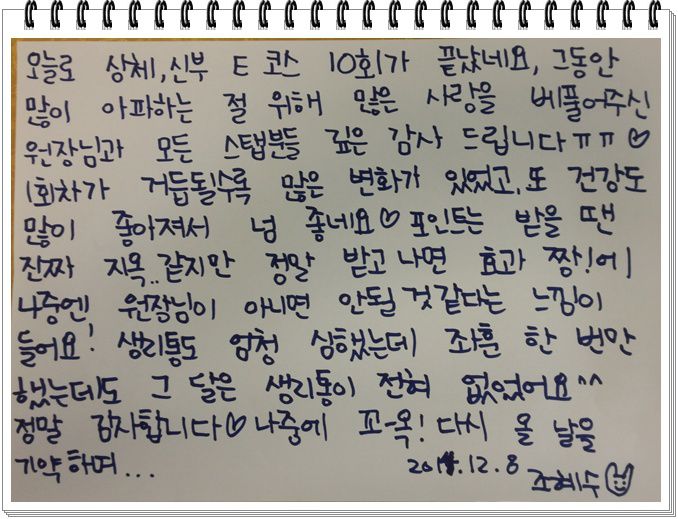 오늘로 상체,신부 E 코스 10회가 끝났네요, 그동안
많이 아파하는 절 위해 많은 사랑을 베풀어주신
원장님과 모든 스탭분들 깊은 감사 드립니다ㅠㅠ♡
1회차가 거듭될수록 많은 변화가 있었고, 또 건강도
많이 좋아져서 넘 좋네요♡ 포인트는 받을 땐
진짜 지옥..같지만 정말 받고 나면 효과 짱!에
나중엔 원장님이 아니면 안될 것 같다는 느낌이
들어요! 생리통도 엄청 심했는데 좌훈 한 번만
했는데도 그 달은 생리통이 전혀 없었어요^^
정말 감사합니다♡ 나중에 꼬-옥! 다시 올 날을
기약하며...
12.8
조혜수